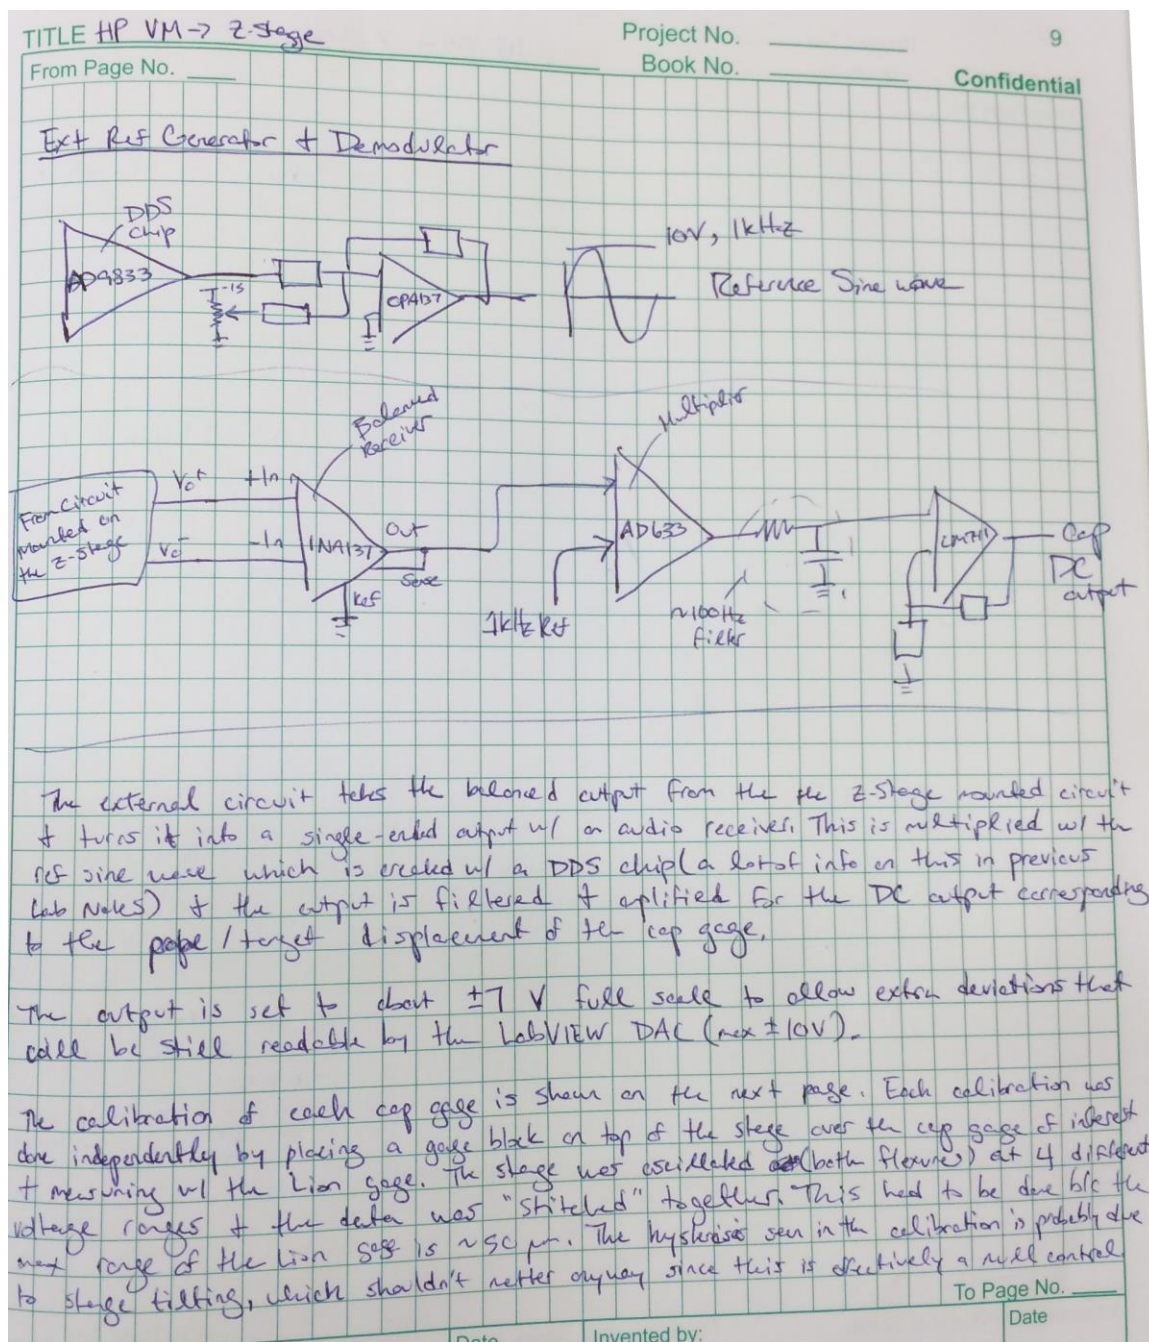 TITLE HP VM -> Z-Stage
Project No.
9
From Page No.
Book No.
Confidential
Ext Ref Generator + Demodulator
DDS
chip
AD9833
-15
OPA137
10V, 1kHz
Reference Sine wave
Balanced
Receiver
Multiplier
From Circuit
Mounted on
the Z-Stage
Vo+
+In
Vo-
-In
INA137
Out
Sense
Ref
1kHz Ref
AD633
~100Hz
filter
LM741
Cap
DC
output
The external circuit takes the balanced output from the the Z-Stage mounted circuit
+ turns it into a single-ended output w/ an audio receiver. This is multiplied w/ the
ref sine wave which is created w/ a DDS chip (a lot of info on this in previous
Lab Notes) + the output is filtered + aplified for the DC output corresponding
to the / target displacement of the cap gage.
The output is set to about ±7 V full scale to allow extra deviations that
be still readable by the LabVIEW DAC (max ±10V).
The calibration of each cap gage is shown on the next page. Each calibration was
done independently by placing a gage block on top of the stage over the cap gage of interest
+ measuring w/ the Lion gage. The stage was oscillated (both flexures) at 4 different
voltage ranges + the data was "stitched" together. This had to be done b/c the
max range of the Lion gage is ~50 µm. The hysterisis seen in the calibration is probably due
to stage tilting, which shouldn't matter anyway since this is effectively a null control
To Page No.
Date
Invented by:
Date